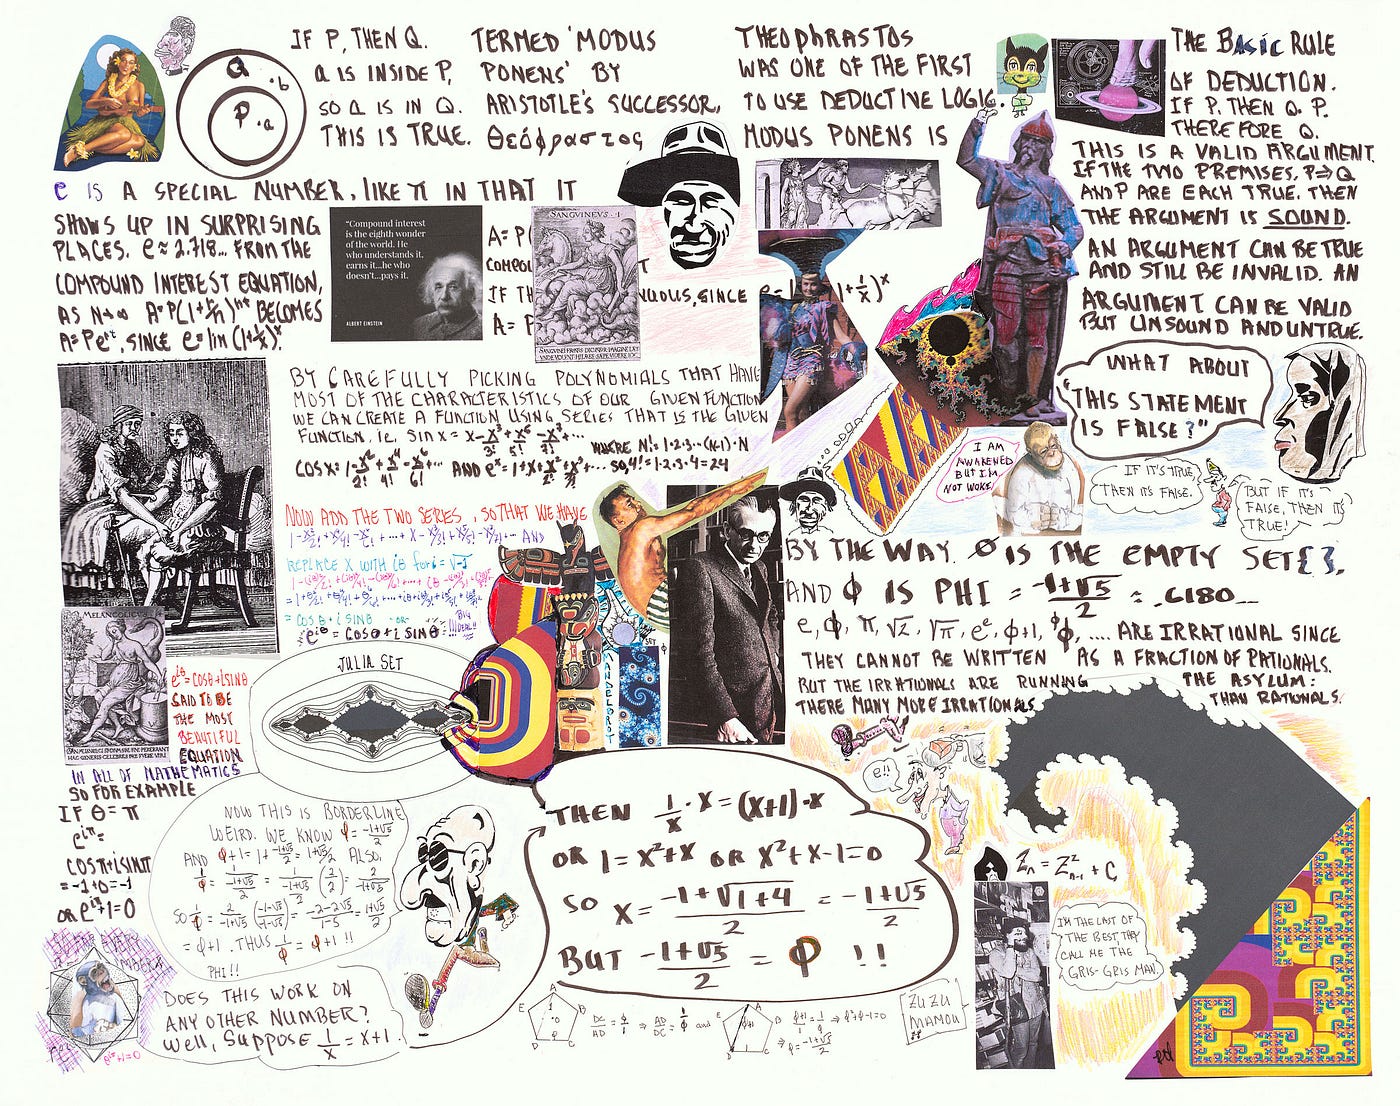 IF P, THEN Q.
Q IS INSIDE P,
SO Q IS IN Q.
THIS IS TRUE.
Q
.b
P .a
TERMED 'MODUS
PONENS' BY
ARISTOTLE'S SUCCESSOR,
Θεόφραστος
THEOPHRASTOS
WAS ONE OF THE FIRST
TO USE DEDUCTIVE LOGIC.
MODUS PONENS IS
THE BASIC RULE
OF DEDUCTION.
IF P, THEN Q. P.
THEREFORE Q.
THIS IS A VALID ARGUMENT.
IF THE TWO PREMISES, P⇒Q
AND P ARE EACH TRUE. THEN
THE ARGUMENT IS SOUND.
AN ARGUMENT CAN BE TRUE
AND STILL BE INVALID. AN
ARGUMENT CAN BE VALID
BUT UNSOUND AND UNTRUE.
e IS A SPECIAL NUMBER, LIKE π IN THAT IT
SHOWS UP IN SURPRISING
PLACES. e ≈ 2.718... FROM THE
COMPOUND INTEREST EQUATION,
AS N→∞ A=P(1+r/n)^nt BECOMES
A=Pe^rt, SINCE e=lim(1+1/x)^x
"Compound interest
is the eighth wonder
of the world. He
who understands it,
earns it...he who
doesn't...pays it.
ALBERT EINSTEIN
A=P(
COMPOU
IF TH
NUOUS, SINCE
A=P
1+1/x)^x
SANGVINEVS. 1
BY CAREFULLY PICKING POLYNOMIALS THAT HAVE
MOST OF THE CHARACTERISTICS OF OUR GIVEN FUNCTION
WE CAN CREATE A FUNCTION USING SERIES THAT IS THE GIVEN
FUNCTION. i.e. Sin x = x-x³/3!+x⁵/5!-x⁷/7!+...
WHERE N!=1·2·3···(N-1)·N
COS X=1-x²/2!+x⁴/4!-x⁶/6!+... AND e^x=1+x+x²/2!+x³/3!+... SO, 4!=1·2·3·4=24
WHAT ABOUT
"THIS STATEMENT
IS FALSE?"
I AM
AWAKENED
BUT I'M
NOT WOKE
IF IT'S TRUE,
THEN IT'S FALSE.
BUT IF IT'S
FALSE, THEN IT'S
TRUE!
NOW ADD THE TWO SERIES, SO THAT WE HAVE
REPLACE X WITH iθ for i=√-1
= COSθ + i SINθ OR
e^iθ = COSθ + i SINθ
BIG
DEAL!!
BY THE WAY. Ø IS THE EMPTY SET { },
AND ϕ IS PHI = (-1+√5)/2 = .6180...
e, ϕ, π, √2, √π, e^e, ϕ+1, ϕ^ϕ, .... ARE IRRATIONAL SINCE
THEY CANNOT BE WRITTEN AS A FRACTION OF RATIONALS.
BUT THE IRRATIONALS ARE RUNNING THE ASYLUM:
THERE MANY MORE IRRATIONALS THAN RATIONALS.
JULIA SET
MANDELBROT
SET
MELANCOLICVS
e^iθ=COSθ+iSINθ
SAID TO BE
THE MOST
BEAUTIFUL
EQUATION
IN ALL OF MATHEMATICS
SO FOR EXAMPLE
IF θ = π
e^iπ=
COSπ+iSINπ
=-1+0=-1
OR e^iπ+1=0
NOW THIS IS BORDERLINE
WEIRD. WE KNOW ϕ=(-1+√5)/2
AND ϕ+1=1+(-1+√5)/2=(1+√5)/2 ALSO,
1/ϕ=1/((-1+√5)/2)=1/((-1+√5)/2)(2/2)=2/(-1+√5)
SO 1/ϕ=2/(-1+√5)((-1-√5)/(-1-√5))=(-2-2√5)/(1-5)=(1+√5)/2
=ϕ+1. THUS 1/ϕ=ϕ+1 !!
PHI!!
DOES THIS WORK ON
ANY OTHER NUMBER?
Well, SUPPOSE 1/X = X+1.
e^iπ+1=0
THEN 1/X · X = (X+1)·X
OR 1=X²+X OR X²+X-1=0
SO X = (-1+√(1+4))/2 = (-1+√5)/2
BUT (-1+√5)/2 = ϕ !!
e!!
Zn = Z²n-1 + C,
I'M THE LAST OF
THE BEST, THEY
CALL ME THE
GRIS-GRIS MAN.
A
E B
D C
DC/AD=ϕ/1 ⇒ AD/DC=1/ϕ and
A
E B
D C
(ϕ+1)/1=1/ϕ ⇒ ϕ²+ϕ-1=0
⇒ ϕ=(-1+√5)/2
ZUZU
MAMOU